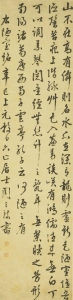 山不在高有僊則名水不在深有龍則靈斯是陋室惟吾
德馨苔痕上階綠草色入簾青談笑有鴻儒往來無白丁
可以調素琴閱金經無絲竹之亂耳無案牘之勞形
南陽諸葛廬西蜀子雲亭孔子云何陋之有
右陋室銘